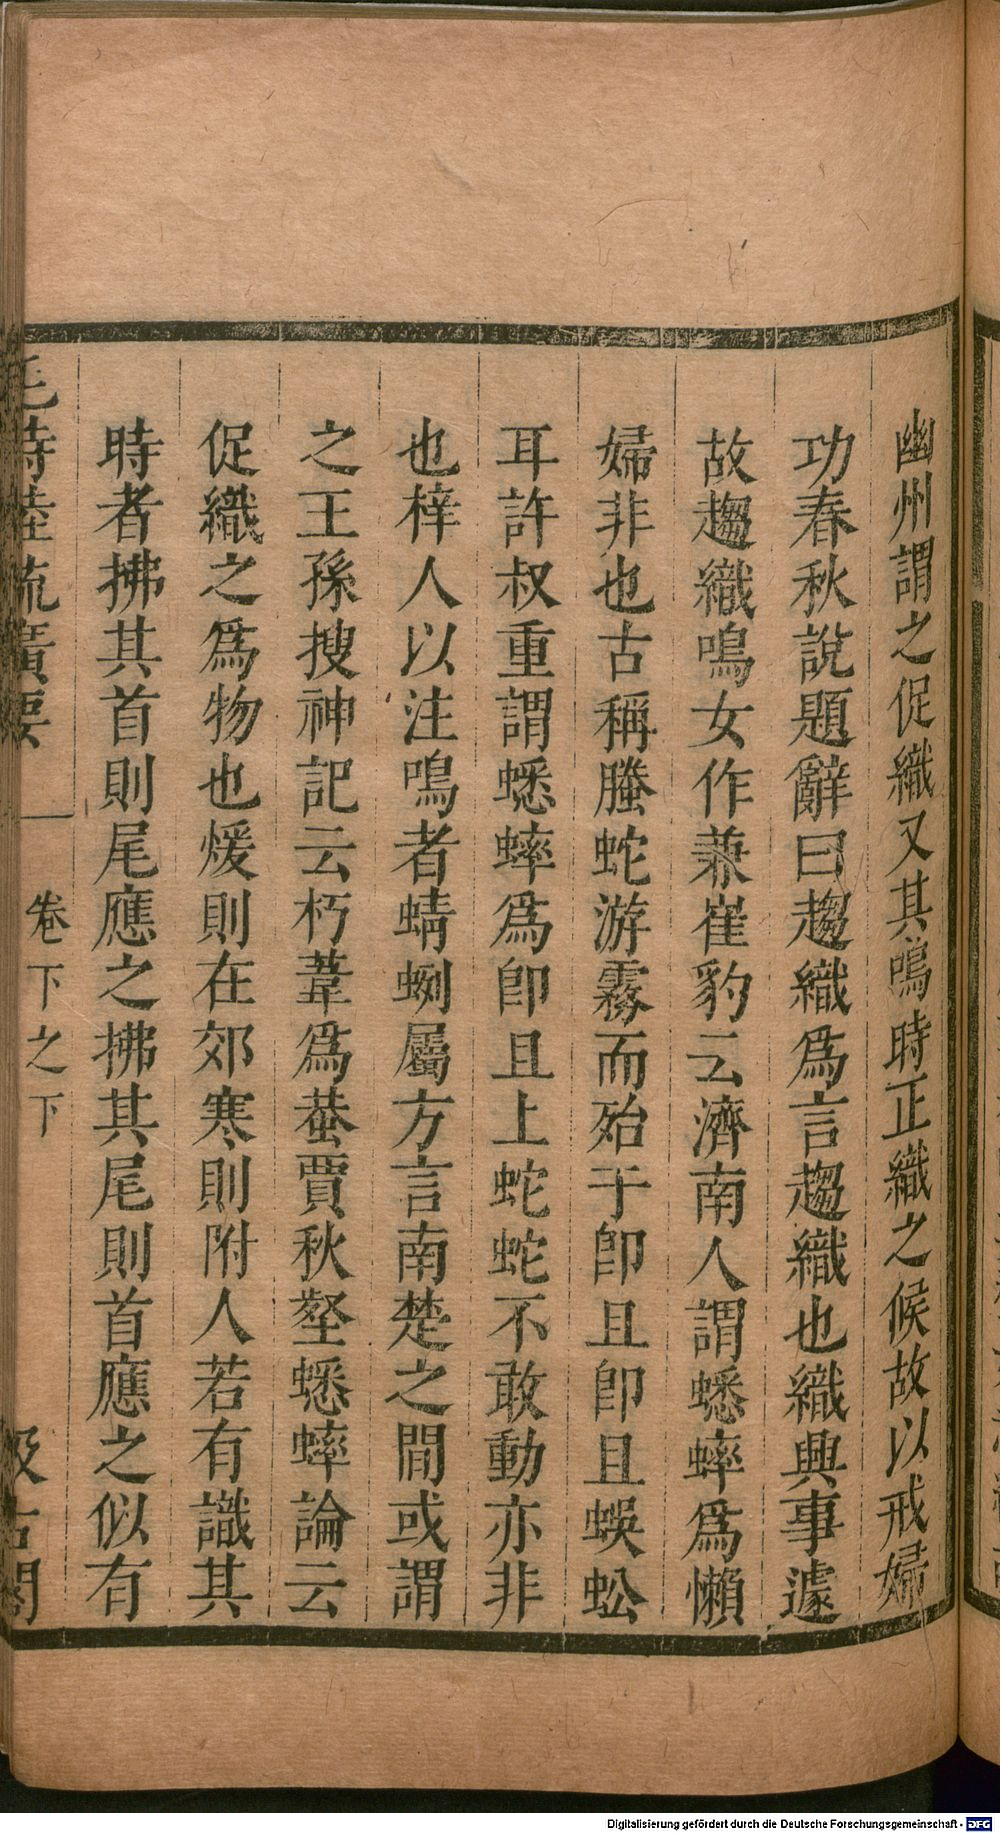 幽州謂之促織又其鳴時正織之候故以戒婦
功春秋說題辭曰趨織爲言趨織也織興事遽
故趨織鳴女作兼崔豹云濟南人謂蟋蟀爲懶
婦非也古稱螣蛇游霧而殆于卽且卽且蜈蚣
耳許叔重謂蟋蟀爲卽且上蛇蛇不敢動亦非
也梓人以注鳴者蜻蛚屬方言南楚之間或謂
之王孫搜神記云朽葦爲蛬賈秋壑蟋蟀論云
促織之爲物也煖則在郊寒則附人若有識其
時者拂其首則尾應之拂其尾則首應之似有
毛詩陸疏廣要 卷下之下 汲古閣
Digitalisierung gefördert durch die Deutsche Forschungsgemeinschaft - DFG